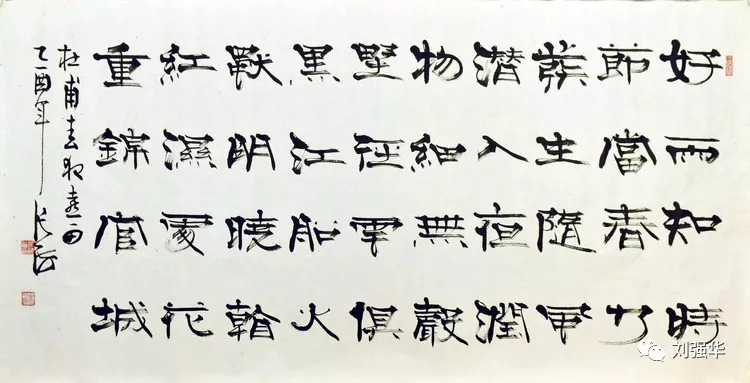 好雨知時
節當春乃
發生隨風
潜入夜潤
物細無聲
野徑雲俱
黑江船火
獨明曉看
紅濕處花
重錦官城
杜甫春夜喜雨
乙酉年
刘强华